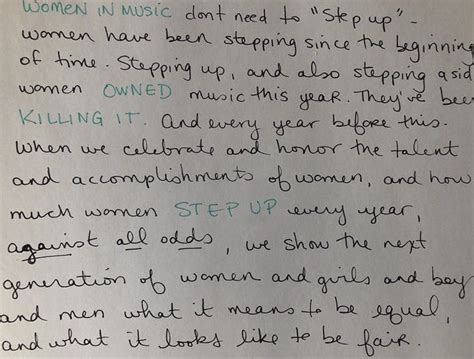 WOMEN IN MUSIC dont need to "Step up" -
women have been stepping since the beginning
of time. Stepping up, and also stepping asid
women OWNED music this year. They've bee
KILLING IT. And every year before this.
When we celebrate and honor the talent
and accomplishments of women, and how
much women STEP UP every year,
against all odds, we show the next
generation of women and girls and boy
and men what it means to be equal,
and what it looks like to be fair.